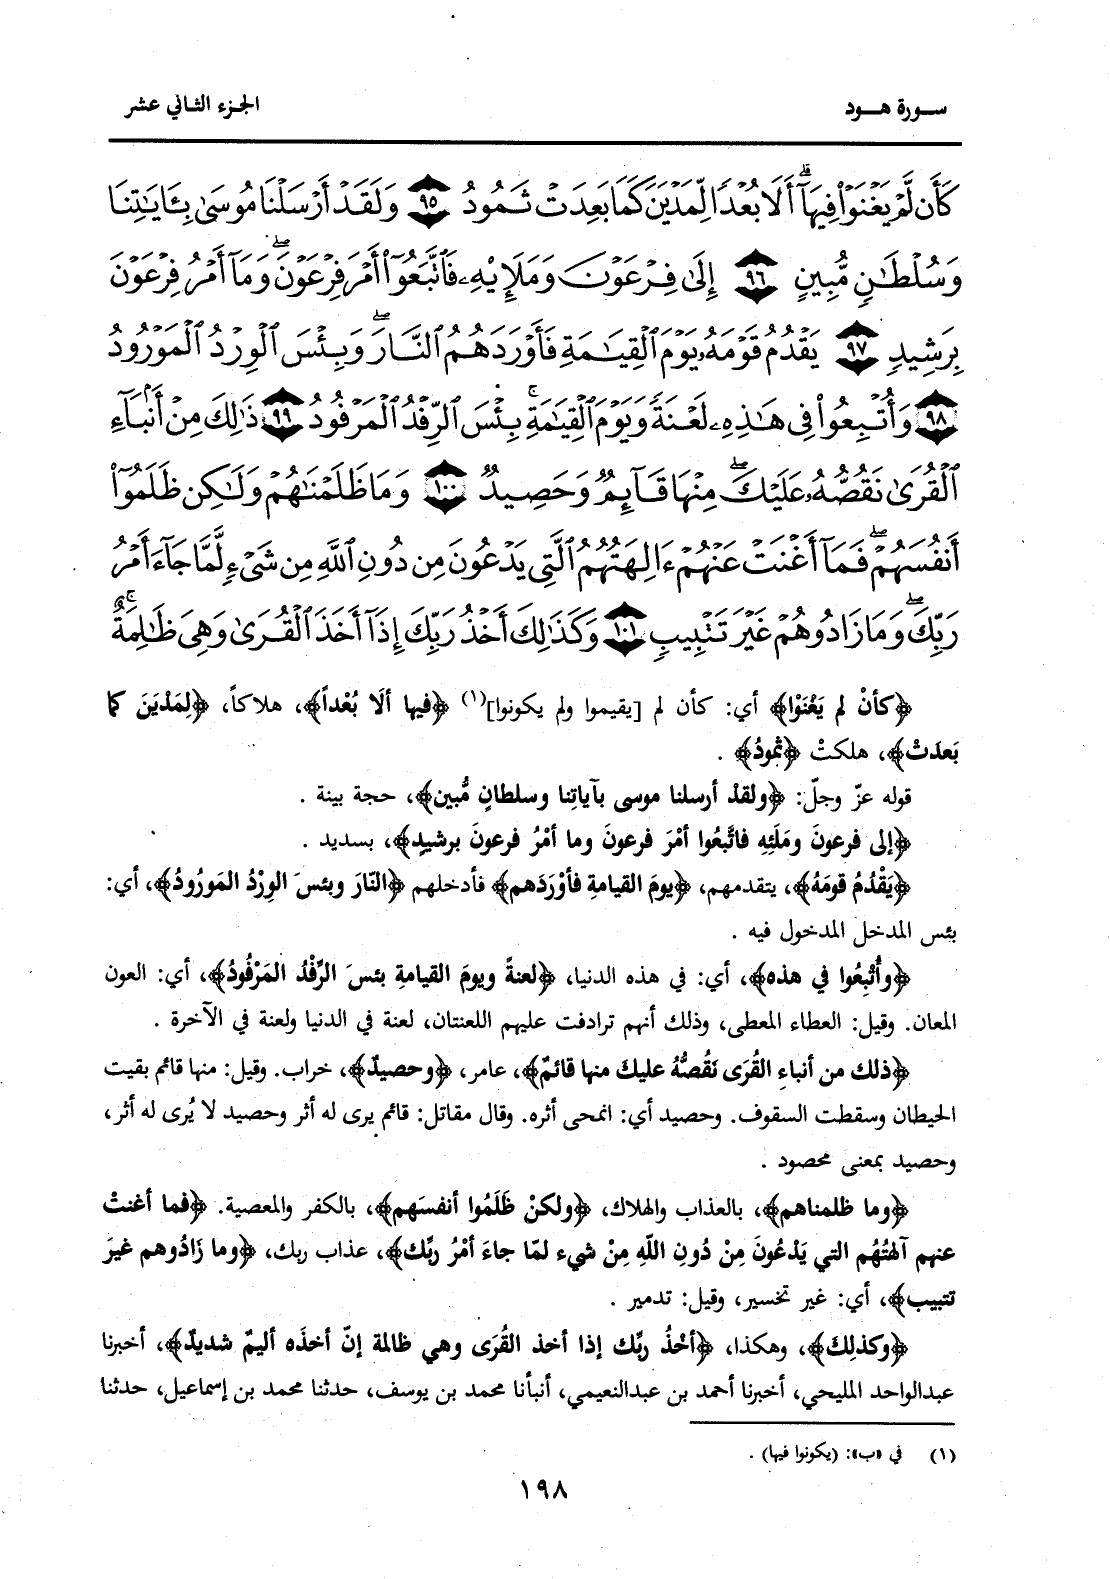 سورة هود
الجزء الثاني عشر
كَأَن لَّمْ يَغْنَوْا۟ فِيهَآ ۗ أَلَا بُعْدًا لِّمَدْيَنَ كَمَا بَعِدَتْ ثَمُودُ ٩٥ وَلَقَدْ أَرْسَلْنَا مُوسَىٰ بِـَٔايَـٰتِنَا
وَسُلْطَـٰنٍ مُّبِينٍ ٩٦ إِلَىٰ فِرْعَوْنَ وَمَلَإِي۟هِۦ فَٱتَّبَعُوٓا۟ أَمْرَ فِرْعَوْنَ ۖ وَمَآ أَمْرُ فِرْعَوْنَ
بِرَشِيدٍ ٩٧ يَقْدُمُ قَوْمَهُۥ يَوْمَ ٱلْقِيَـٰمَةِ فَأَوْرَدَهُمُ ٱلنَّارَ ۖ وَبِئْسَ ٱلْوِرْدُ ٱلْمَوْرُودُ
٩٨ وَأُتْبِعُوا۟ فِى هَـٰذِهِۦ لَعْنَةً وَيَوْمَ ٱلْقِيَـٰمَةِ ۚ بِئْسَ ٱلرِّفْدُ ٱلْمَرْفُودُ ٩٩ ذَٰلِكَ مِنْ أَنۢبَآءِ
ٱلْقُرَىٰ نَقُصُّهُۥ عَلَيْكَ ۖ مِنْهَا قَآئِمٌ وَحَصِيدٌ ١٠٠ وَمَا ظَلَمْنَـٰهُمْ وَلَـٰكِن ظَلَمُوٓا۟
أَنفُسَهُمْ ۖ فَمَآ أَغْنَتْ عَنْهُمْ ءَالِهَتُهُمُ ٱلَّتِى يَدْعُونَ مِن دُونِ ٱللَّهِ مِن شَىْءٍ لَّمَّا جَآءَ أَمْرُ
رَبِّكَ ۖ وَمَا زَادُوهُمْ غَيْرَ تَتْبِيبٍ ١٠١ وَكَذَٰلِكَ أَخْذُ رَبِّكَ إِذَآ أَخَذَ ٱلْقُرَىٰ وَهِىَ ظَـٰلِمَةٌ ۚ
﴿كأنْ لم يَغْنَوْا﴾ أي: كأن لم [يقيموا ولم يكونوا](١) ﴿فيها ألَا بُعْداً﴾، هلاكاً، ﴿لِمَدْيَنَ كما
بَعدَتْ﴾، هلكتْ ﴿ثمودُ﴾ .
قوله عزّ وجلّ: ﴿ولقدْ أرسلنا موسى بآياتِنا وسلطانٍ مُّبين﴾، حجة بينة .
﴿إلى فرعونَ ومَلَئِهِ فاتَّبعُوا أمْرَ فرعونَ وما أمْرُ فرعونَ برشيدٍ﴾، بسديد .
﴿يَقْدُمُ قومَهُ﴾، يتقدمهم، ﴿يومَ القيامةِ فأوْرَدَهم﴾ فأدخلهم ﴿النّارَ وبئسَ الوِرْدُ المَورُودُ﴾، أي:
بئس المدخل المدخول فيه .
﴿وأُتْبِعُوا في هذه﴾، أي: في هذه الدنيا، ﴿لعنةً ويومَ القيامةِ بئسَ الرِّفْدُ المَرْفُودُ﴾، أي: العون
المعان. وقيل: العطاء المعطى، وذلك أنهم ترادفت عليهم اللعنتان، لعنة في الدنيا ولعنة في الآخرة .
﴿ذلك من أنباءِ القُرَى نَقُصُّهُ عليكَ منها قائمٌ﴾، عامر، ﴿وحصيدٌ﴾، خراب. وقيل: منها قائم بقيت
الحيطان وسقطت السقوف. وحصيد أي: انمحى أثره. وقال مقاتل: قائم يرى له أثر وحصيد لا يُرى له أثر،
وحصيد بمعنى محصود .
﴿وما ظلمناهم﴾، بالعذاب والهلاك، ﴿ولكنْ ظَلَمُوا أنفسَهم﴾، بالكفر والمعصية. ﴿فما أغنتْ
عنهم آلهتُهُم التي يَدْعُونَ مِنْ دُونِ اللّهِ مِنْ شيء لمّا جاءَ أمْرُ ربِّك﴾، عذاب ربك، ﴿وما زَادُوهم غيرَ
تتبيب﴾، أي: غير تخسير، وقيل: تدمير .
﴿وكذلِكَ﴾، وهكذا، ﴿أخْذُ ربِّك إذا أخذ القُرَى وهي ظالمة إنّ أخذَه أليمٌ شديدٌ﴾، أخبرنا
عبدالواحد المليحي، أخبرنا أحمد بن عبدالنعيمي، أنبأنا محمد بن يوسف، حدثنا محمد بن إسماعيل، حدثنا
(١) في «ب»: (يكونوا فيها) .
١٩٨